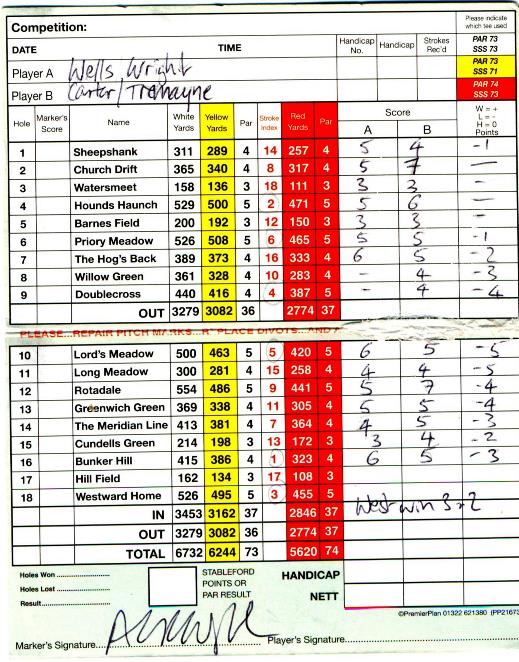 Competition: Please indicate which tee used
DATE TIME Handicap No. Handicap Strokes Rec'd PAR 73 SSS 73
Player A Wells Wright PAR 73 SSS 71
Player B Carter/Tremayne PAR 74 SSS 73
Hole Marker's Score Name White Yards Yellow Yards Par Stroke Index Red Yards Par Score A B W = + L = - H = 0 Points
1 Sheepshank 311 289 4 14 257 4 5 4 -1
2 Church Drift 365 340 4 8 317 4 5 7 —
3 Watersmeet 158 136 3 18 111 3 3 3 -
4 Hounds Haunch 529 500 5 2 471 5 5 6 —
5 Barnes Field 200 192 3 12 150 3 3 3 -
6 Priory Meadow 526 508 5 6 465 5 5 5 -1
7 The Hog's Back 389 373 4 16 333 4 6 5 -2
8 Willow Green 361 328 4 10 283 4 - 4 -3
9 Doublecross 440 416 4 4 387 5 - 4 -4
OUT 3279 3082 36 2774 37
PLEASE...REPAIR PITCH MARKS...R PLACE DIVOTS...AND
10 Lord's Meadow 500 463 5 5 420 5 6 5 -5
11 Long Meadow 300 281 4 15 258 4 4 4 -5
12 Rotadale 554 486 5 9 441 5 5 7 -4
13 Greenwich Green 369 338 4 11 305 4 5 5 -4
14 The Meridian Line 413 381 4 7 364 4 4 5 -3
15 Cundells Green 214 198 3 13 172 3 3 4 -2
16 Bunker Hill 415 386 4 1 323 4 6 5 -3
17 Hill Field 162 134 3 17 108 3
18 Westward Home 526 495 5 3 455 5 West win 3+2
IN 3453 3162 37 2846 37
OUT 3279 3082 36 2774 37
TOTAL 6732 6244 73 5620 74
Holes Won STABLEFORD POINTS OR PAR RESULT HANDICAP
Holes Lost NETT
Result
©PremierPlan 01322 621380 (PP21673
Marker's Signature Player's Signature